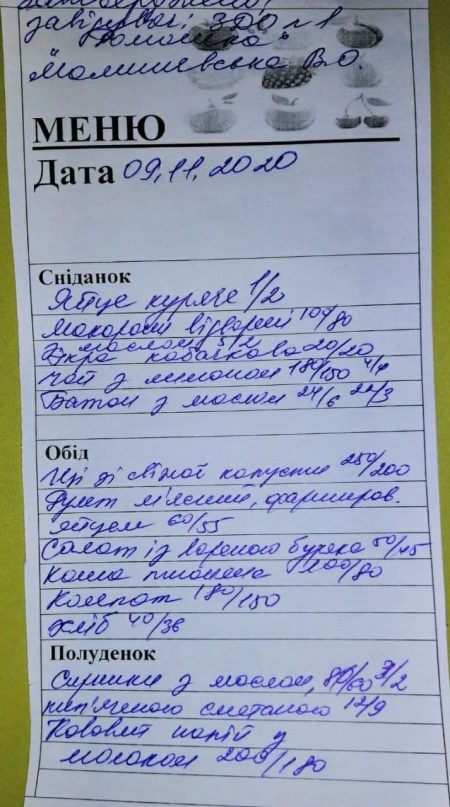 Затверджено:
завідувач ЗДО №1
"Ромашка"
Малишевська В.О.
МЕНЮ
Дата 09.11.2020
Сніданок
Яйце куряче 1/2
Макарони відварені 100/80
з маслом 3/2
Ікра кабачкова 20/20
Чай з лимоном 180/150 4/4
Батон з маслом 24/6 22/3
Обід
Щі зі свіжої капусти 250/200
Рулет м'ясний, фарширов.
яйцем 60/55
Салат із вареного буряка 50/45
Каша пшоняна 100/80
Компот 180/150
Хліб 40/36
Полуденок
Сирники з маслом, 80/60 3/2
кип'яченою сметаною 12/9
Кавовий напій з
молоком 200/180